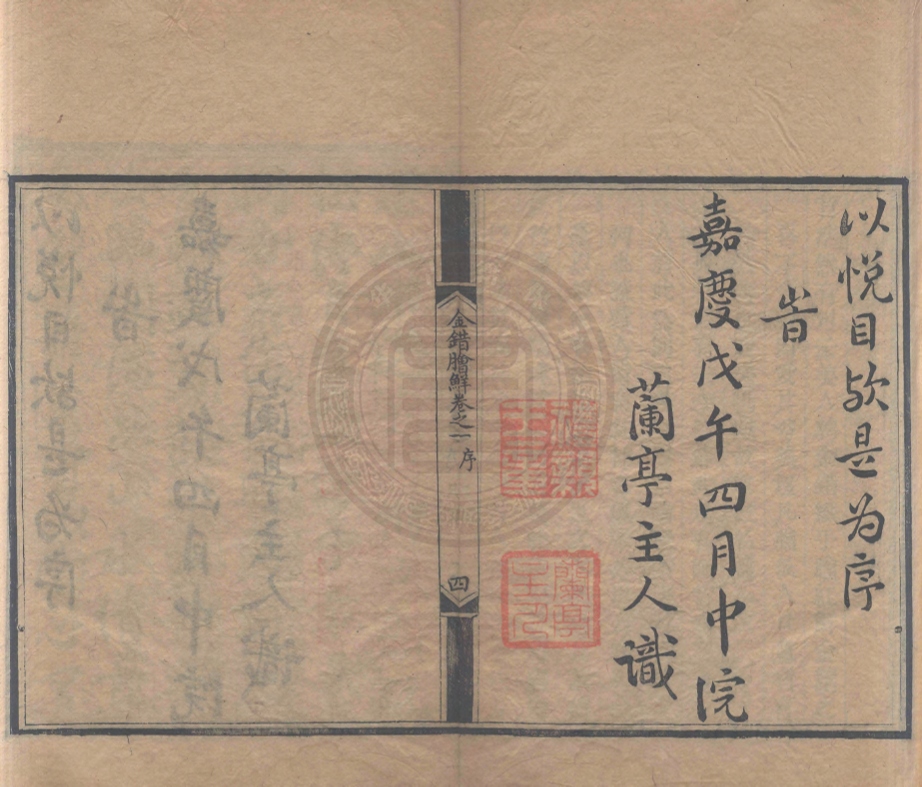 以悦目欤是为序
旹
嘉慶戊午四月中浣
蘭亭主人識
蘭亭主人
金錯膾鮮卷之一 序
四